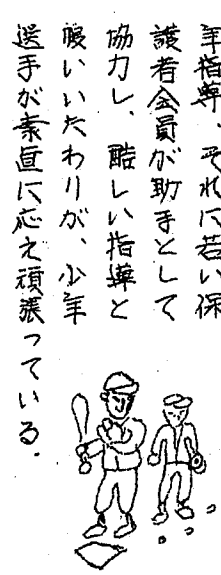 年指導、それに若い保
護者全員が助手として
協力し、酷しい指導と
暖いいたわりが、少年
選手が素直に応え頑張っている.